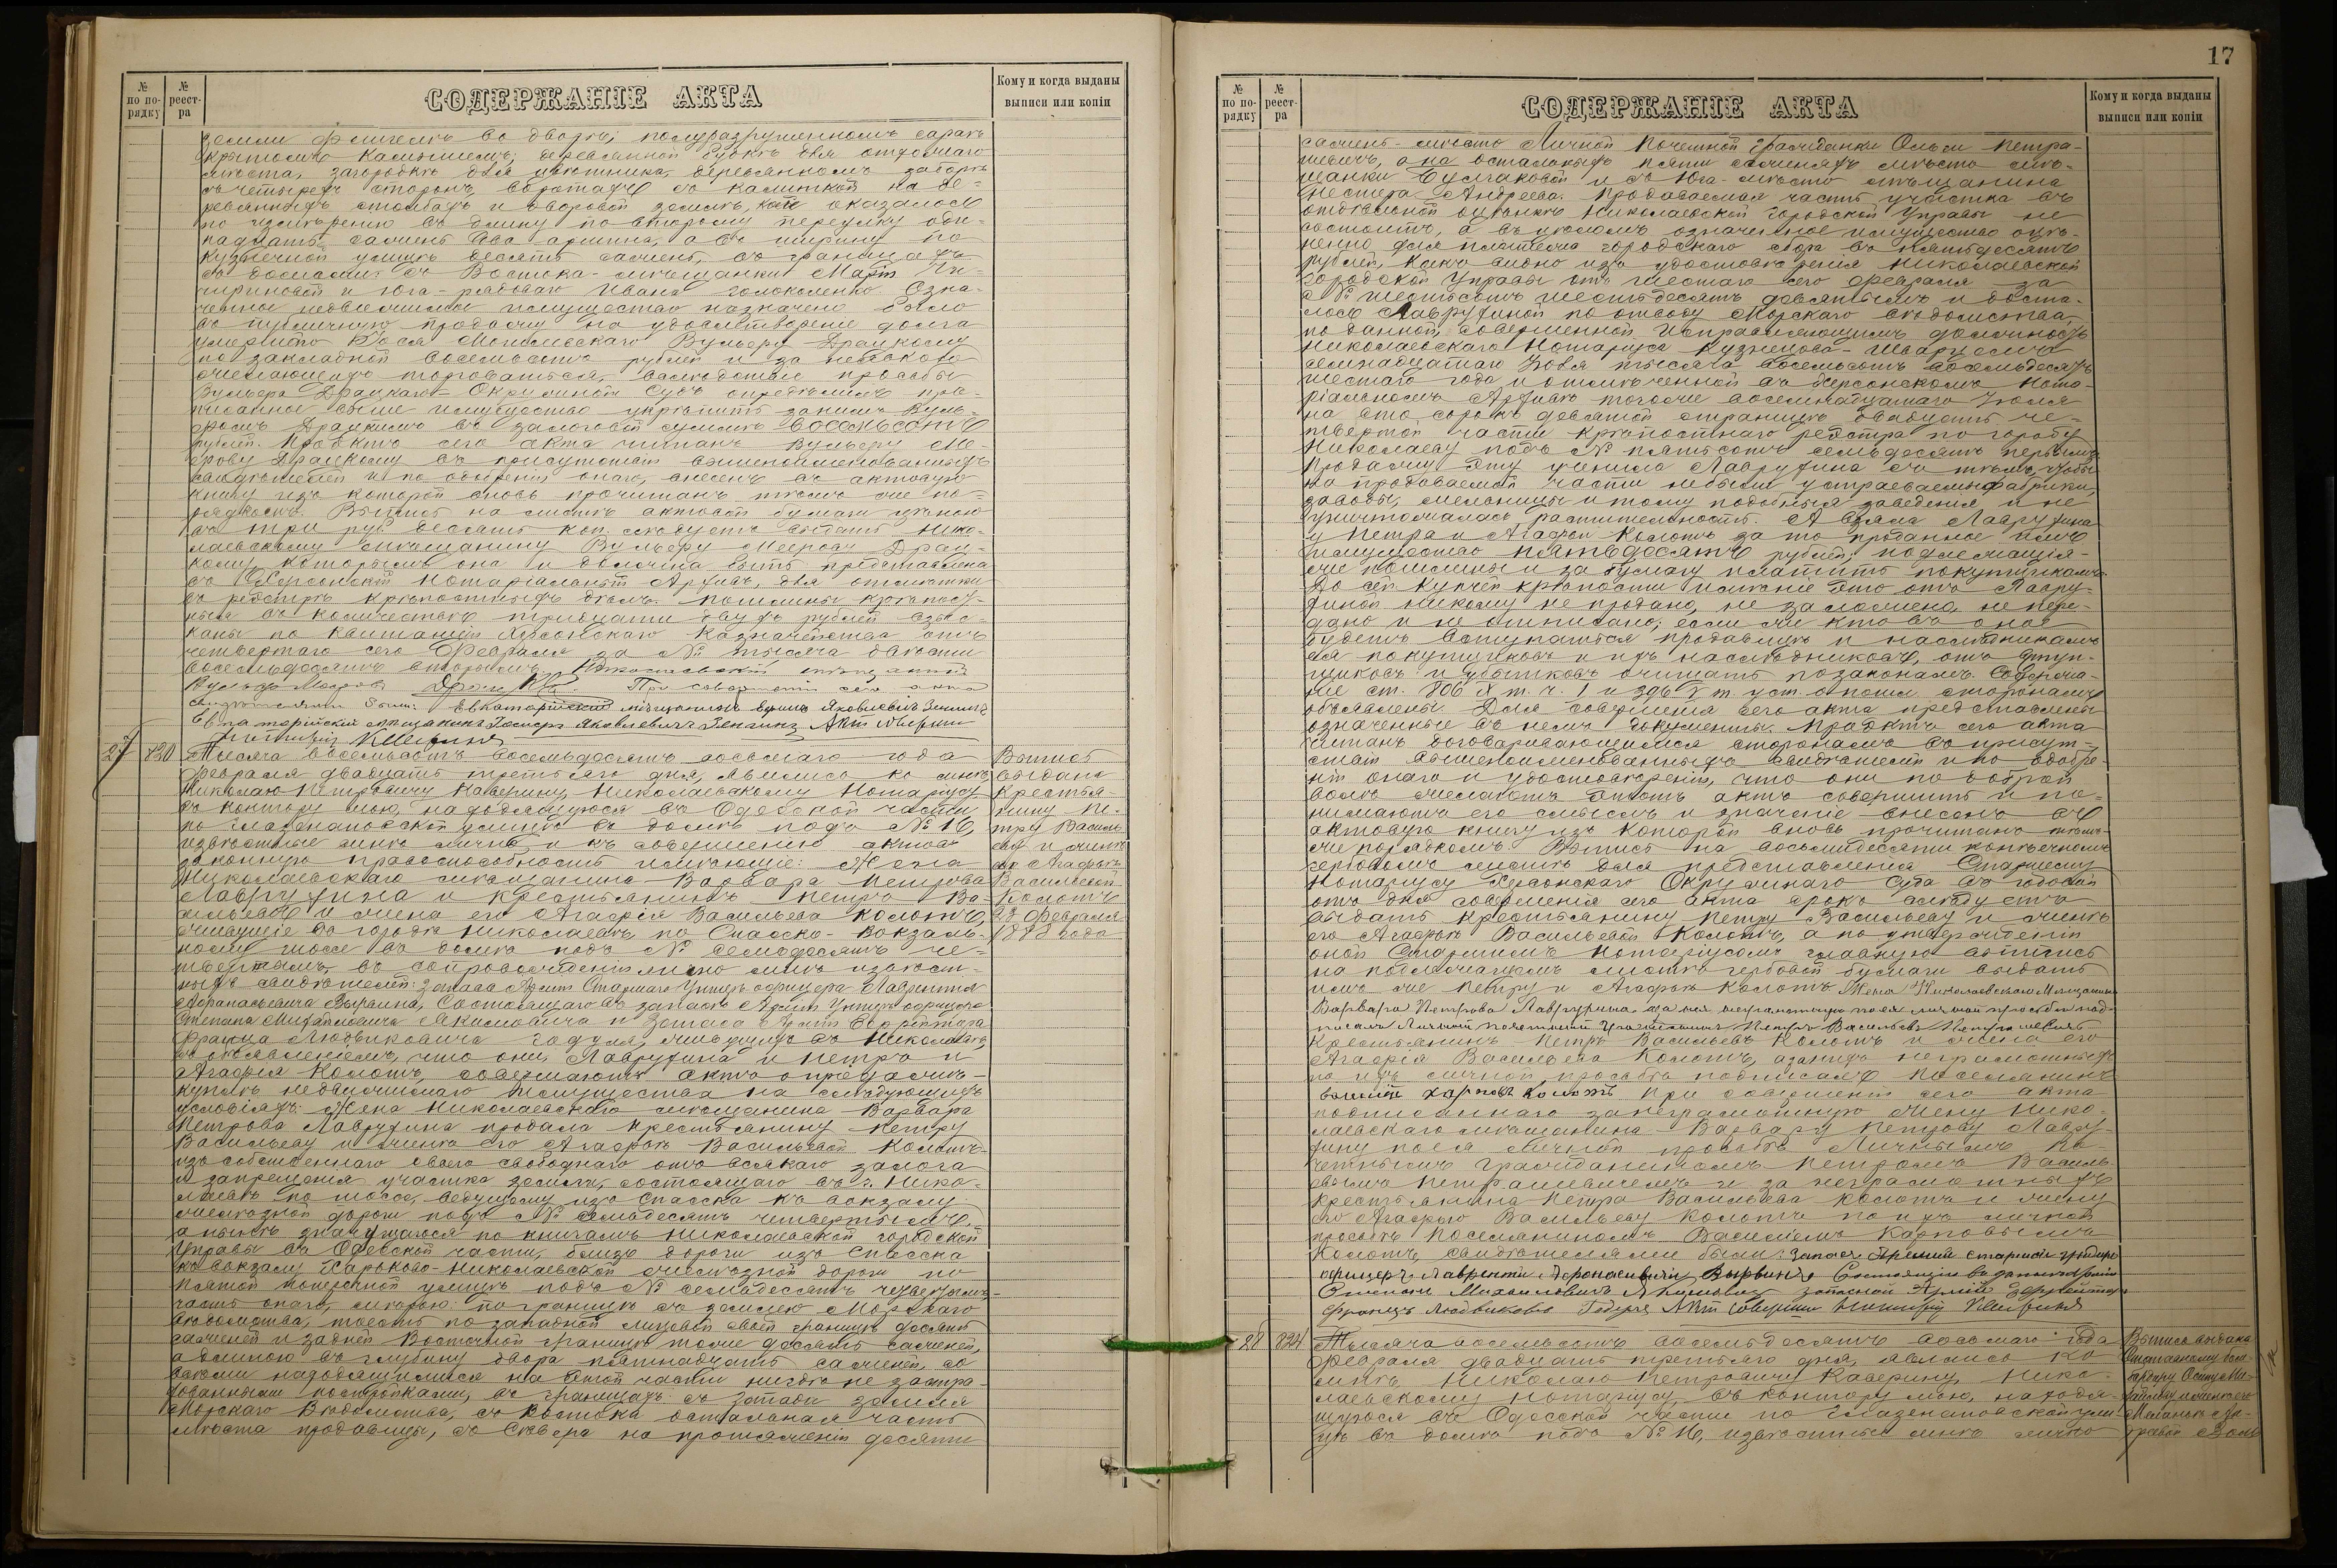 № по по-рядку
№ реест-ра
СОДЕРЖАНІЕ АКТА
Кому и когда выданы выписи или копіи
земли флигелѣ во дворѣ, полуразрушенномъ сараѣ
крытомъ камышемъ, деревянной будкѣ для отхожаго
мѣста, загородкѣ для цвѣтника, деревянномъ заборѣ
съ четырехъ сторонъ, воротахъ съ калиткой на де-
ревянныхъ столбахъ и дворовой землѣ, коей оказалось
по измѣренію въ длину по второму переулку оди-
надцать саженъ два аршина, а въ ширину по
Кузнечной улицѣ десять саженъ, въ границахъ
съ домами: съ Востока - мѣщанки Маріи
и Юга - рядоваго Ивана Голоколенко. Озна-
ченное недвижимое имущество назначено было
въ публичную продажу на удовлетвореніе долга
Вульфу Драцкому
по закладной восемьсотъ рублей и за неявкою
желающихъ торговаться, вслѣдствіе просьбы
Вульфа Драцкаго - Окружный Судъ опредѣлилъ про-
писанное выше имущество укрѣпить за нимъ Вуль-
фомъ Драцкимъ въ залоговой суммѣ восемьсотъ
рублей. Проектъ сего акта читанъ Вульфу Ме-
ерову Драцкому въ присутствіи вышепоименованныхъ
свидѣтелей и по одобреніи онаго, внесенъ въ актовую
книгу изъ которой вновь прочитанъ тѣмъ же по-
рядкомъ. Выпись на листѣ актовой бумаги цѣною
въ три руб. десять коп. слѣдуетъ выдать Нико-
лаевскому мѣщанину Вульфу Меерову Драц-
кому, которымъ она и должна быть представлена
въ Херсонскій Нотаріальный Архивъ, для отмѣтки
въ реестрѣ крѣпостныхъ дѣлъ. Пошлины крѣпост-
ныя въ количествѣ тридцати двухъ рублей взыс-
каны по квитанціи Херсонскаго Казначейства отъ
четвертаго сего Февраля за № тысяча двѣсти
восемьдесятъ вторымъ. Николаевскій мѣщанинъ
Вульфъ Мееровъ Драцкій. При совершеніи сего акта
свидѣтелями были: Евпаторійскій мѣщанинъ
Евпаторійскій мѣщанинъ Іосифъ Яковлевичъ Зенкинъ Актъ совершилъ
Нотаріусъ Н. Каверинъ
27
820
Тысяча восемьсотъ восемьдесятъ восьмаго года
Февраля двадцать третьяго дня, явились ко мнѣ,
Николаю Петровичу Каверину, Николаевскому Нотаріусу
въ контору мою, находящуюся въ Одесской части
по Глазенаповской улицѣ въ домѣ подъ № 16,
извѣстные мнѣ лично и къ совершенію актовъ
законную правоспособность имѣющіе: Жена
Николаевскаго мѣщанина Варвара Петрова
Лаврухина и крестьянинъ Петръ Ва-
сильевъ и жена его Агафія Васильева Коломъ,
живущіе въ городѣ Николаевѣ по Спасско-Вокзаль-
ному шоссе въ домѣ подъ № семьдесятъ че-
твертымъ, въ сопровожденіи лично мнѣ извѣст-
ныхъ свидѣтелей: запаса Арміи Старшаго Унтеръ офицера Лаврентія
Афанасьевича Вырвина, Состоящаго въ запасѣ Арміи Унтеръ офицера
Степана Михайловича Якимовича и Запаса Арміи Ефрейтора
Франца Людвиковича Годуля, живущихъ въ Николаевѣ,
съ объявленіемъ, что они, Лаврухина и Петръ и
Агафія Коломъ, совершаютъ актъ о продажѣ-
куплѣ недвижимаго имущества на слѣдующихъ
условіяхъ: Жена Николаевскаго мѣщанина Варвара
Петрова Лаврухина продала крестьянину Петру
Васильеву и женѣ его Агафіи Васильевой Коломъ-
изъ собственнаго своего свободнаго отъ всякаго залога
и запрещенія участка земли, состоящаго въ г. Нико-
лаевѣ по шоссе, ведущему изъ Спасска къ вокзалу
желѣзной дороги подъ № семьдесятъ четвертымъ,
а нынѣ значущагося по книгамъ Николаевской городской
Управы въ Одесской части, близъ дороги изъ Спасска
къ вокзалу Харьково-Николаевской желѣзной дороги по
пятой поперечной улицѣ подъ № семьдесятъ четвертымъ,-
часть онаго, мѣрою: по границѣ съ землею Морскаго
Вѣдомства, тоесть по западной лицевой своей границѣ десять
саженей и задней Восточной границѣ тоже десять саженей,
а длиною въ глубину двора пятнадцать саженей, со
всѣми находящимися на этой части нигдѣ не застра-
хованными постройками, въ границахъ: съ Запада земля
Морскаго Вѣдомства, съ Востока остальная часть
мѣста продавицы, съ Сѣвера на протяженіи десяти
Выпись
выдана
Крестья-
нину Пе-
тру Василь-
еву и женѣ
его Агафіи
Васильевой
Коломъ
23 Февраля
1888 года
17
№ по по-рядку
№ реест-ра
СОДЕРЖАНІЕ АКТА
Кому и когда выданы выписи или копіи
саженъ - мѣсто Личной Почетной Гражданки Ольги Петра-
шевичъ, а на остальныхъ пяти саженяхъ мѣсто мѣ-
щанки Булгаковой и съ Юга - мѣсто мѣщанина
Нестера Андреева. Продаваемая часть участка въ
отдѣльной оцѣнкѣ Николаевской Городской Управы не
состоитъ, а въ цѣломъ означенное имущество оцѣ-
нено для платежа городскаго сбора въ пятьдесятъ
рублей, какъ видно изъ удостовѣренія Николаевской
Городской Управы отъ шестаго сего Февраля за
№ шестьсотъ шестьдесятъ девятымъ и доста-
лось Лаврухиной по отводу Морскаго Вѣдомства,
по данной, совершенной Исправляющимъ должность
Николаевскаго Нотаріуса Кузнецова - Шварцемъ
семнадцатаго Іюля тысяча восемьсотъ восемьдесятъ
шестаго года и отмѣченной въ Херсонскомъ Нота-
ріальномъ Архивѣ тогоже восемнадцатаго Іюля
на сто сорокъ девятой страницѣ двадцать че-
твертой части крѣпостнаго реестра по городу
Николаеву подъ № пятьсотъ семьдесятъ первымъ.
Продажу эту учинила Лаврухина съ тѣмъ, чтобы
на продаваемой части небыли устраиваемы фабрики,
заводы, мельницы и тому подобныя заведенія и не
уничтожалась растительность. А взяла Лаврухина
у Петра и Агафіи Коломъ за то проданное имъ
имущество пятьдесятъ рублей; подлежащія-
же пошлины и за бумагу платить покупщикамъ.
До сей купчей крѣпости имѣніе это отъ Лавру-
хиной никому не продано, не заложено, не пере-
дано и не отписано; если же кто въ оное
будетъ вступаться продавицѣ и наслѣдникамъ
ея покупщиковъ и ихъ наслѣдниковъ, отъ вступ-
щиковъ и убытковъ очищать по законамъ. Содержа-
ніе ст. 806 X т. ч. 1 и 396 V т. уст. о пошл. сторонамъ
объявлены. Для совершенія сего акта представлены
означенные въ немъ документы. Проектъ сего акта
читанъ договаривающимся сторонамъ въ присут-
ствіи вышепоименованныхъ свидѣтелей и по одобре-
ніи онаго и удостовѣреніи, что они по доброй
волѣ желаютъ этотъ актъ совершить и по-
нимаютъ его смыслъ и значеніе внесенъ въ
актовую книгу изъ которой вновь прочитанъ тѣмъ-
же порядкомъ. Выпись на восьмидесяти копѣечномъ
гербовомъ листѣ для представленія Старшему
Нотаріусу Херсонскаго Окружнаго Суда въ годовой
отъ дня совершенія сего акта срокъ слѣдуетъ
выдать крестьянину Петру Васильеву и женѣ
его Агафіи Васильевой Коломъ, а по утвержденіи
оной Старшимъ Нотаріусомъ главную выпись
на подлежащемъ листѣ гербовой бумаги выдать
имъ же Петру и Агафіи Коломъ. Жена Николаевскаго Мѣщанина
Варвара Петрова Лаврухина, а за нея неграмотную по ея личной просьбѣ под-
писалъ Личный почетный гражданинъ Петръ Васильевъ Петрашевичъ
Крестьянинъ Петръ Васильевъ Коломъ и жена его
Агафія Васильева Коломъ, а за нихъ неграмотныхъ
по ихъ личной просьбѣ подписалъ поселянинъ
Василій Карповъ Коломъ При совершеніи сего акта
подписаннаго за неграмотную жену Нико-
лаевскаго мѣщанина Варвару Петрову Лавру-
хину по ея личной просьбѣ Личнымъ По-
четнымъ Гражданиномъ Петромъ Василь-
евымъ Петрашевичемъ и за неграмотныхъ
крестьянина Петра Васильева Коломъ и жену
его Агафію Васильеву Коломъ по ихъ личной
просьбѣ поселяниномъ Василіемъ Карповымъ
Коломъ, свидѣтелями были: Запаса Арміи старшій унтеръ
офицеръ Лаврентій Афонасьевичъ Вырвинъ Состоящій въ запасѣ Арміи
Степанъ Михайловичъ Якимовичъ запасной Арміи Ефрейторъ
Францъ Людвиковъ Годуля Актъ совершилъ Нотаріусъ Н. Каверинъ
28
824
Тысяча восемьсотъ восемьдесятъ восьмаго года
Февраля двадцать третьяго дня, явились ко
мнѣ, Николаю Петровичу Каверину, Нико-
лаевскому Нотаріусу, въ контору мою, находя-
щуюся въ Одесской части по Глазенаповской ули-
цѣ въ домѣ подъ № 16, извѣстные мнѣ лично
Выпись выдана
Осипу Ми-
хайлову и женѣ его
Меланьѣ Ан-